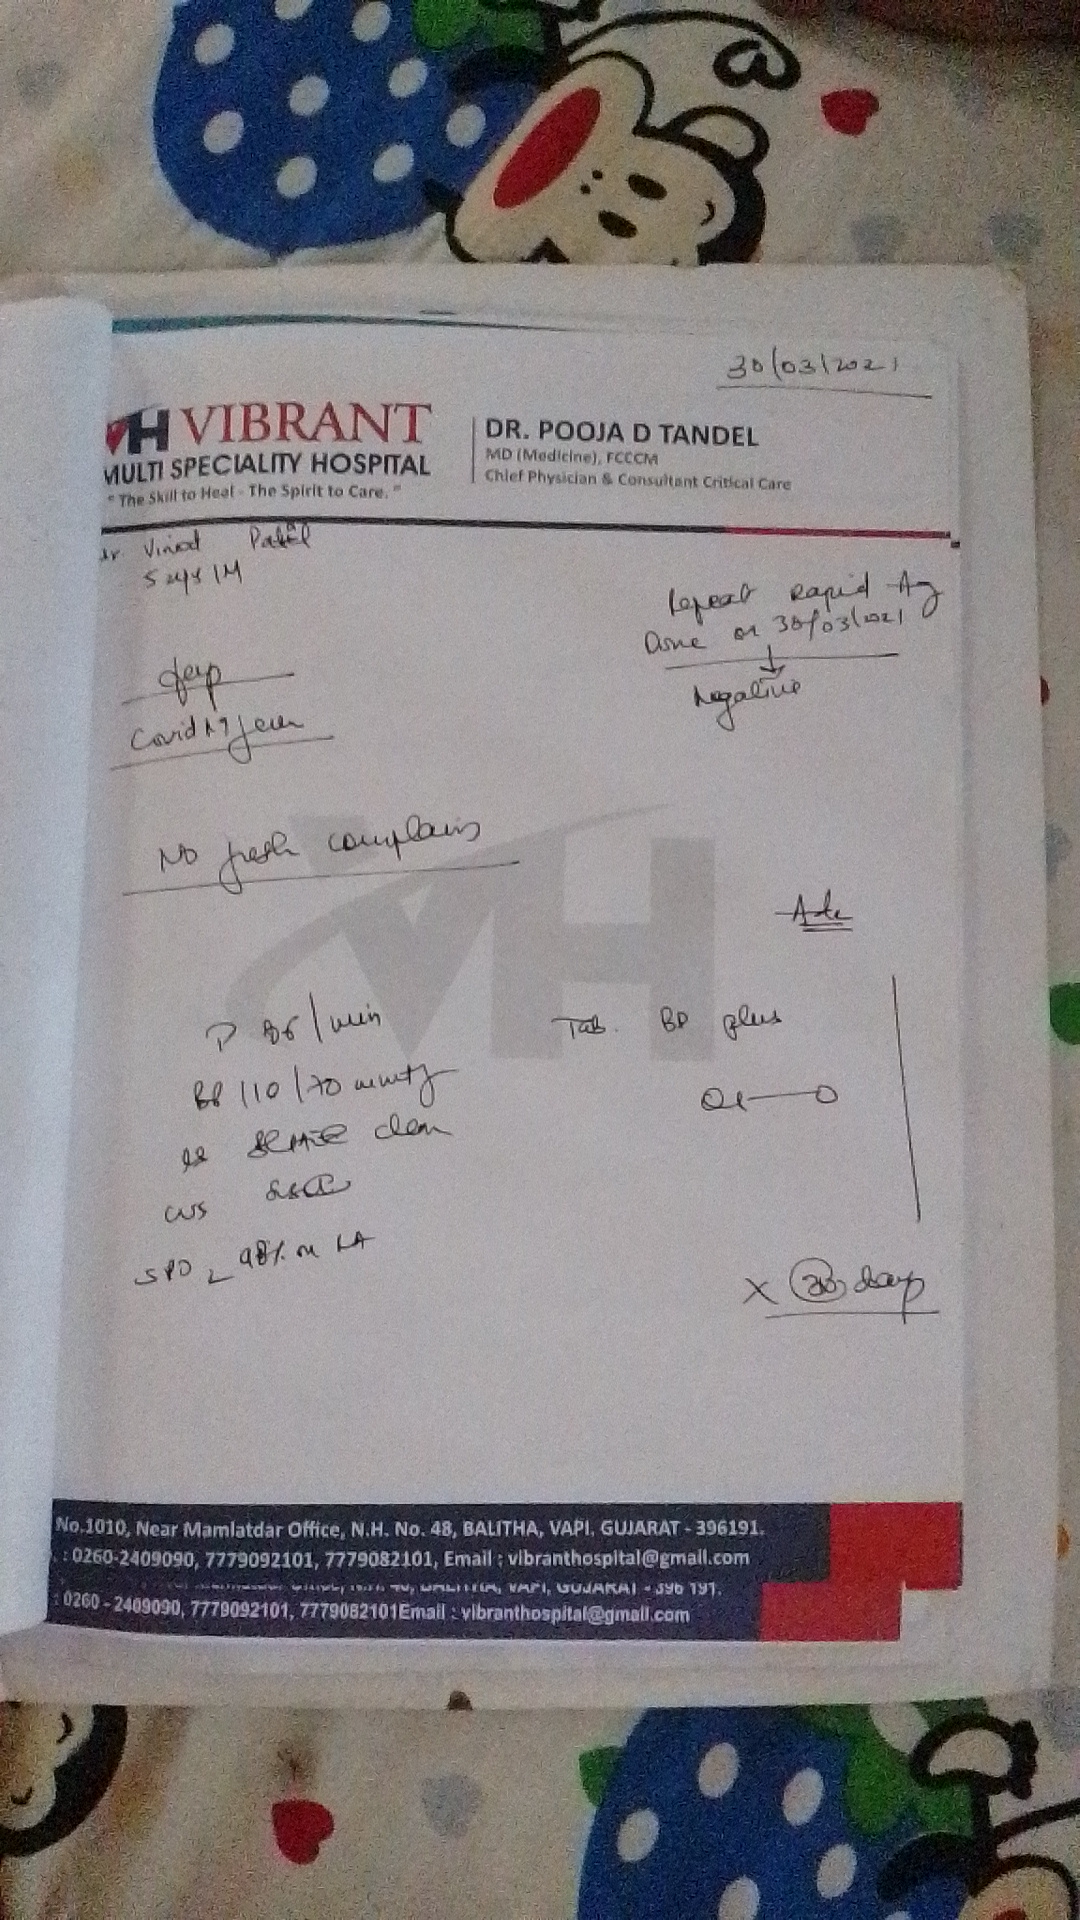 30/03/2021
VH VIBRANT
MULTI SPECIALITY HOSPITAL
"The Skill to Heal - The Spirit to Care."
DR. POOJA D TANDEL
MD (Medicine), FCCCM
Chief Physician & Consultant Critical Care
Vinod Patel
Repeat Rapid Ag
Done on 30/03/2021
Negative
Covid 19 fever
No fresh complains
Adv
P 86/min
Tab. BP plus
BP 110/70 mmHg
clear
CVS
SPO2 98% on RA
X days
No.1010, Near Mamlatdar Office, N.H. No. 48, BALITHA, VAPI. GUJARAT - 396191.
: 0260-2409090, 7779092101, 7779082101, Email : vibranthospital@gmail.com
BALITHA, VAPI, GUJARAT - 396 191.
: 0260 - 2409090, 7779092101, 7779082101Email : vibranthospital@gmail.com